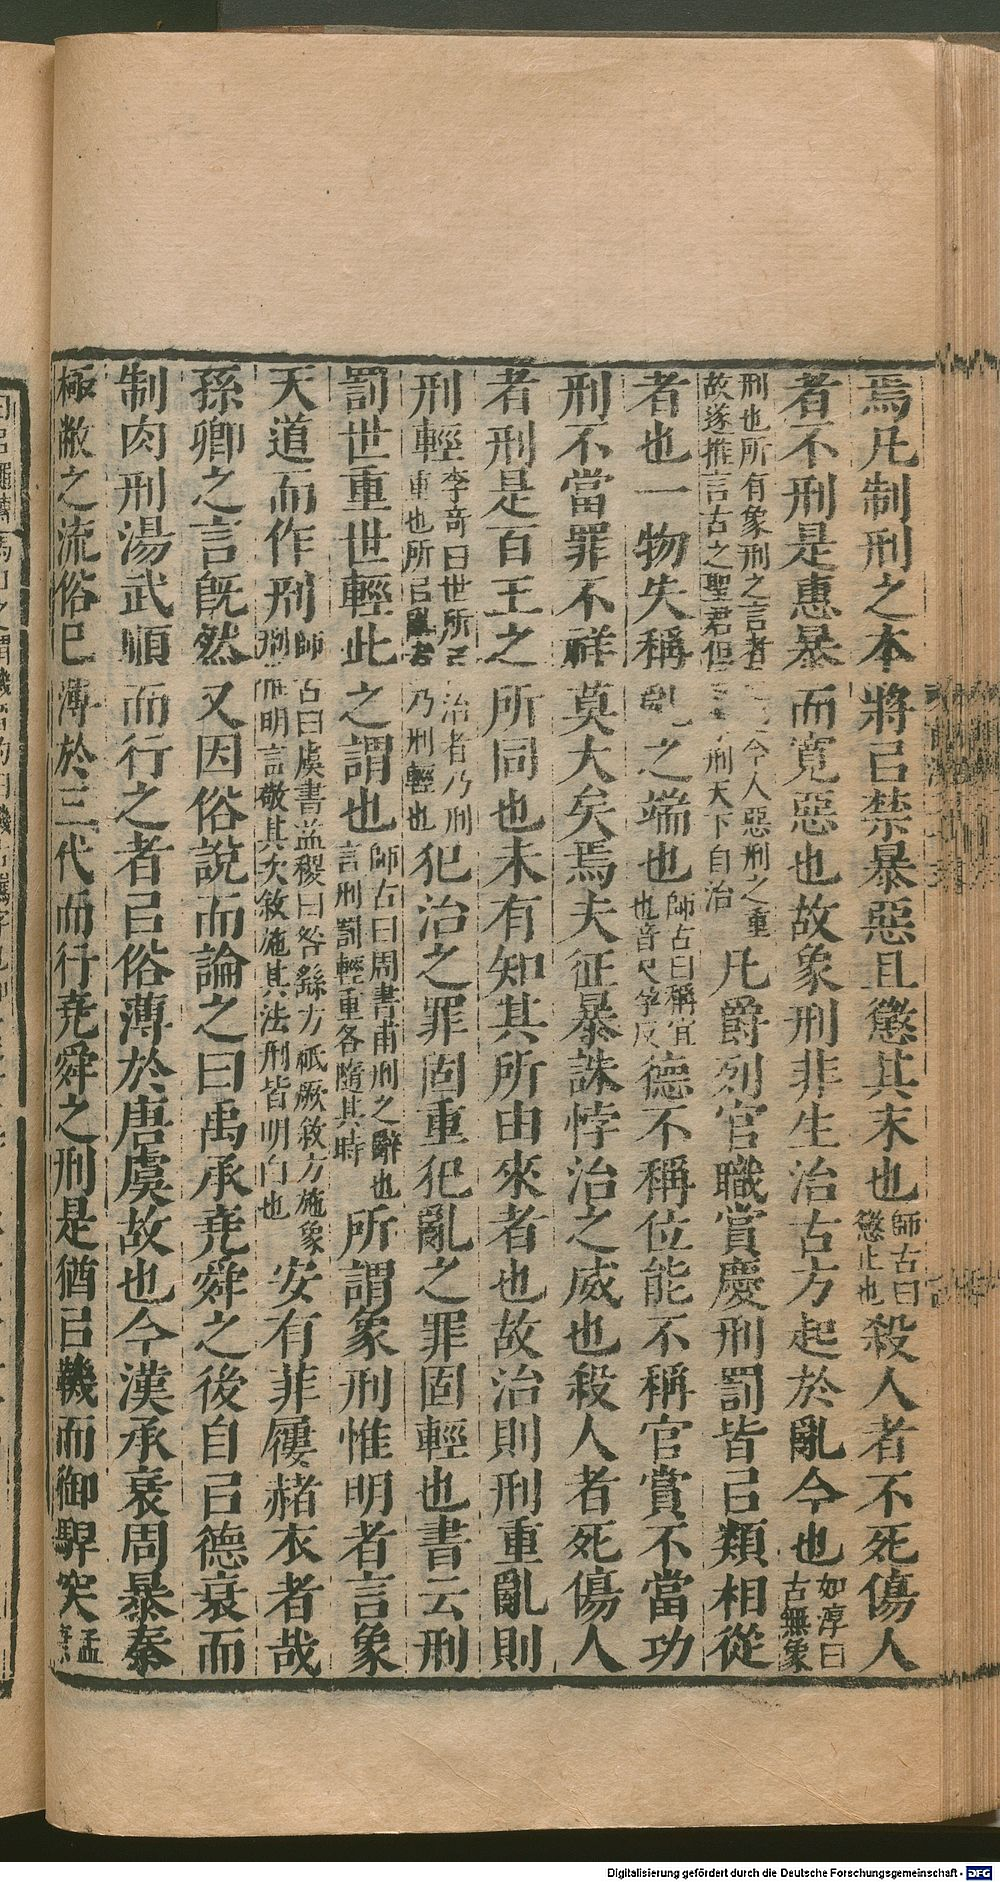 焉凡制刑之本將㠯禁暴惡且懲其末也師古曰懲止也殺人者不死傷人
者不刑是惠暴而寛惡也故象刑非生治古方起於亂今也如淳曰古無象
刑也所有象刑之言者今人惡刑之重故遂推言古之聖君但刑天下自治凡爵列官職賞慶刑罰皆㠯類相從
者也一物失稱亂之端也師古曰稱宜也音尺孕反德不稱位能不稱官賞不當功
刑不當罪不祥莫大矣焉夫征暴誅悖治之威也殺人者死傷人
者刑是百王之所同也未有知其所由來者也故治則刑重亂則
刑輕李奇曰世所㠯治者乃刑重也所㠯亂者乃刑輕也犯治之罪固重犯亂之罪固輕也書云刑
罰世重世輕此之謂也師古曰周書甫刑之辭也言刑罰輕重各隨其時所謂象刑惟明者言象
天道而作刑師古曰虞書益稷曰咎繇方祗厥敘方施象刑惟明言敬其次敘施其法刑皆明白也安有菲屨赭衣者哉
孫卿之言旣然又因俗說而論之曰禹承堯舜之後自㠯德衰而
制肉刑湯武順而行之者㠯俗薄於唐虞故也今漢承衰周暴秦
極敝之流俗巳薄於三代而行堯舜之刑是猶㠯鞿而御駻突孟
Digitalisierung gefördert durch die Deutsche Forschungsgemeinschaft - DFG